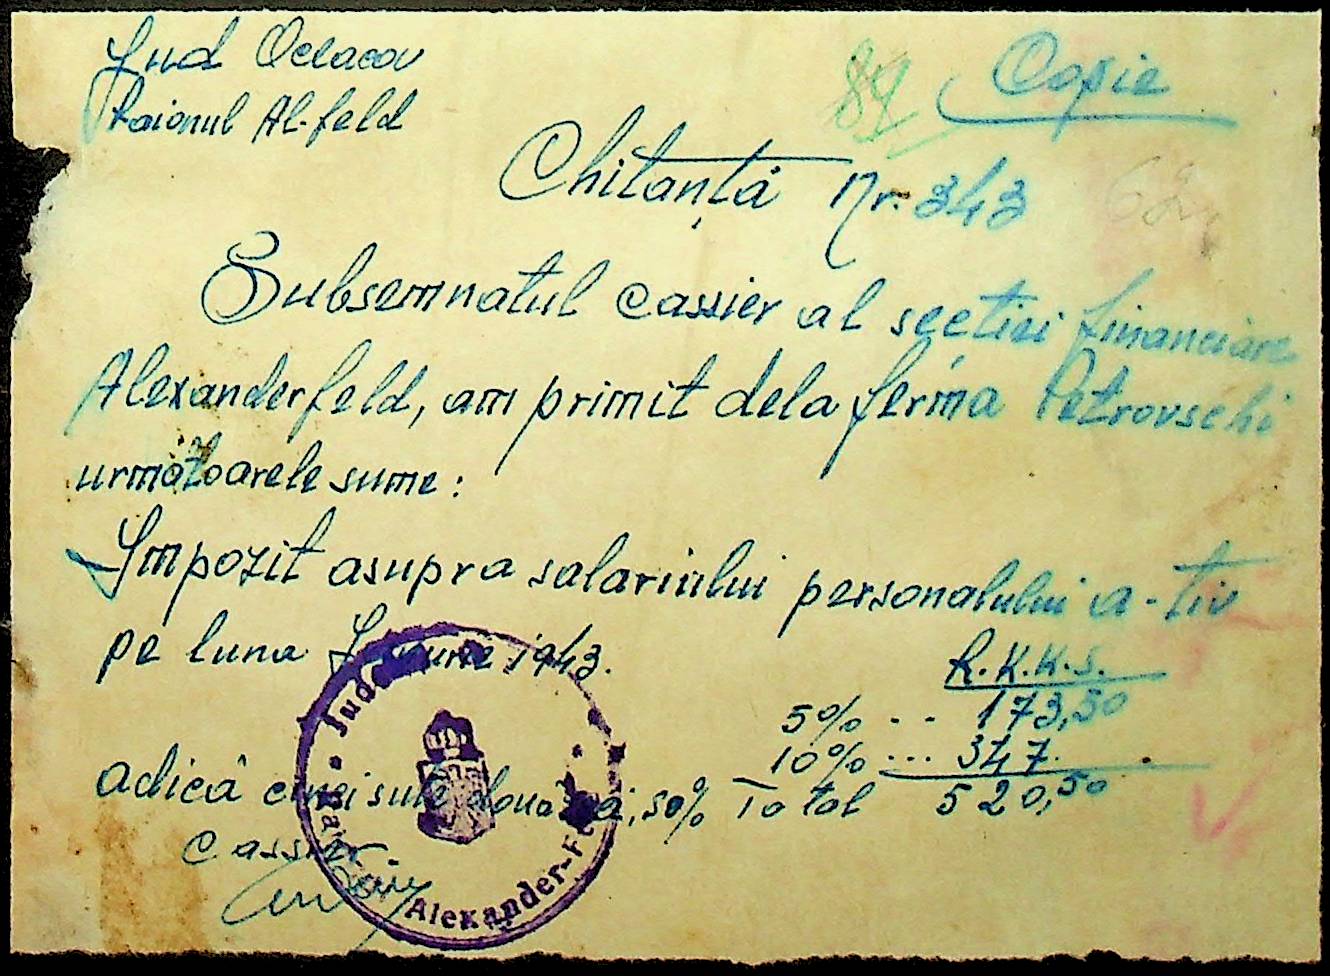 Jud Oceacov
Raionul Al-feld
89
Copie
Chitanță Nr. 343
62
Subsemnatul cassier al secției financiare
Alexanderfeld, am primit dela ferma Petrovschi
următoarele sume:
Impozit asupra salariului personalului a-tiv
pe luna Iunie 1943.
R.K.K.S.
5% ... 173,50
10% ... 347.
adică cinci sute douăzeci, 50% Total 520,50
Cassier
Jude
Alexander-Fe